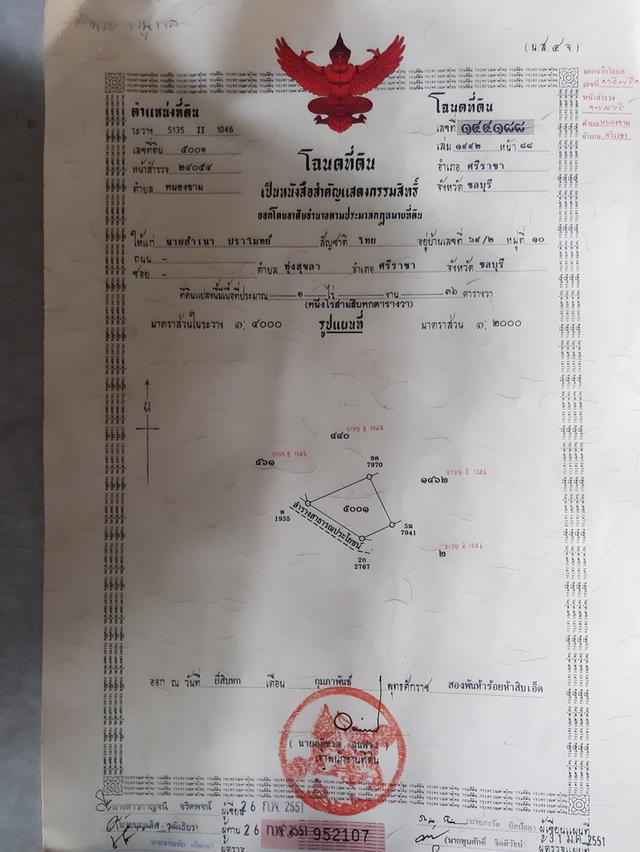 (น.ส.๔ จ)
ตำแหน่งที่ดิน
ระวาง 5135 II 1046
เลขที่ดิน ๕๐๐๑
หน้าสำรวจ ๒๔๐๕๔
ตำบล หนองขาม
โฉนดที่ดิน
เลขที่ ๑๔๔๑๘๘
เล่ม ๑๔๔๒ หน้า ๘๘
อำเภอ ศรีราชา
จังหวัด ชลบุรี
ออกจากโฉนด
เลขที่
หน้าสำรวจ
ตำบล หนองขาม
อำเภอ ศรีราชา
โฉนดที่ดิน
เป็นหนังสือสำคัญแสดงกรรมสิทธิ์
ออกโดยอาศัยอำนาจตามประมวลกฎหมายที่ดิน
ให้แก่ นายสำเนา ปราโมทย์ สัญชาติ ไทย อยู่บ้านเลขที่ ๖๙/๒ หมู่ที่ ๑๐
ถนน -
ซอย - ตำบล ทุ่งสุขลา อำเภอ ศรีราชา จังหวัด ชลบุรี
ที่ดินแปลงนี้มีเนื้อที่ประมาณ ๑ ไร่ - งาน ๓๖ ตารางวา
(หนึ่งไร่สามสิบหกตารางวา)
มาตราส่วนในระวาง ๑: ๔๐๐๐ รูปแผนที่ มาตราส่วน ๑: ๒๐๐๐
น
๔๔๐
๕๖๑
9ค
7970
๑๔๖๒
ต
1935
๕๐๐๑
5ฆ
7941
ลำรางสาธารณประโยชน์
๒
2ก
2767
ออก ณ วันที่ ยี่สิบหก เดือน กุมภาพันธ์ พุทธศักราช สองพันห้าร้อยห้าสิบเอ็ด
เจ้าพนักงานที่ดิน
นางสาวกาญจนี จริตพจน์ ผู้เขียน 26 ก.พ. 2551
ผู้ทาน 26 ก.พ. 2551
952107
ผู้ตรวจ
ผู้เขียนแผนที่
(นายพูนศักดิ์ จิตติวัชน์) 31 ม.ค. 2551
ผู้ตรวจแผนที่